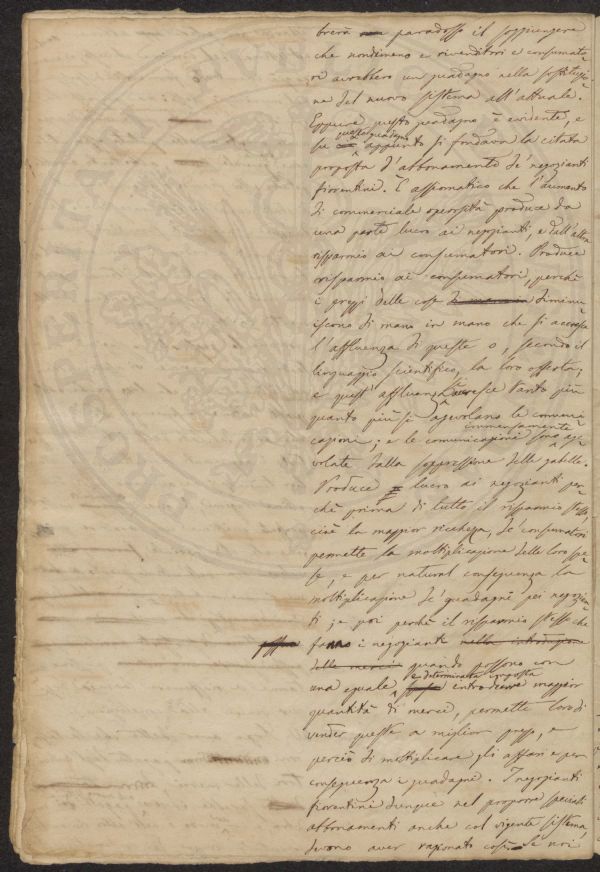 brerà paradosso il soggiungere
che nondimeno e rivenditori e consumato-
ri avrebbero un guadagno nella sostituzio-
ne del nuovo sistema all'attuale.
Eppure questo guadagno è evidente, e
su questo guadagno appunto si fondava la citata
proposta d'abbonamento de' negozianti
fiorentini. È assiomatico che l'aumento
di commerciale operosità produce da
una parte lucro ai negozianti, e dall'altra
risparmio ai consumatori. Produce
risparmio ai consumatori, perchè
i prezzi delle cose di mano in diminu-
iscono di mano in mano che si accresce
l'affluenza di queste o, secondo il
linguaggio scientifico, la loro offerta;
e quest'affluenza cresce tanto più
quanto più si agevolano le comuni-
cazioni; e le comunicazioni sono immensamente age-
volate dalla soppressione delle gabelle.
Produce lucro ai negozianti per-
chè prima di tutto il risparmio stesso
cioè la maggior ricchezza, de' consumatori
permette la moltiplicazione delle loro spe-
se, e per natural conseguenza la
moltiplicazione de' guadagni pei negozian-
ti; e poi perchè il risparmio stesso che
fanno i negozianti nella introduzione
delle merci quando possono con
una eguale e determinata imposta introdurre maggior
quantità di merce, permette loro di
vender queste a miglior prezzo, e
perciò di moltiplicare gli affari e per
conseguenza i guadagni. I negozianti
fiorentini dunque nel proporre speciali
abbonamenti anche col vigente sistema,
devono aver ragionato così: Se noi